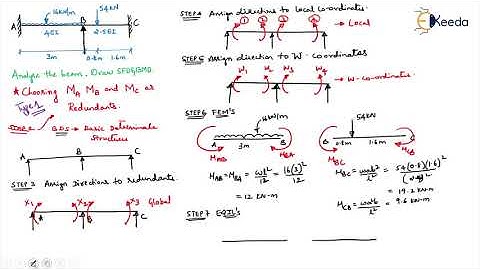 16kN/m
54kN
A
B
C
4EI
2.5EI
3m
0.8m
1.6m
Analyse the beam. Draw SFD&BMD.
* Choosing MA MB and MC as
Redundants.
Type 1
STEP 2
BDS → Basic Determinate
Structures
A
B
C
STEP 3 Assign Directions to redundants.
x1
x2
x3
Global
A
B
C
STEP 4 Assign directions to local co-ordinates
1
2
3
4
→ Local
STEP 5 Assign direction to W-coordinates
W1
W2
W3
W4
→ W-co-ordinates
STEP 6 FEM's
16kN/m
54kN
A
3m
B
B
0.8m
1.6m
C
MAB
MBA
MBC
MCB
MAB = MBA = wl²/12 = 16(3)²/12
= 12 kN-m
MBC = wab²/l² = 54(0.8)(1.6)²/(2.4)²
= 19.2 kN-m
MCB = wa²b/l² = 9.6 kN-m
STEP 7 EQJL's
Ekeeda